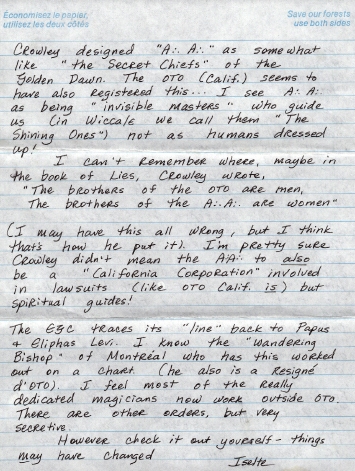 Économisez le papier,
utilisez les deux côtés
Save our forests
use both sides
Crowley designed "A∴ A∴" as somewhat
like "the Secret Chiefs" of the
Golden Dawn. The OTO (Calif.) seems to
have also registered this... I see A∴ A∴
as being "invisible masters" who guide
us (in Wicca/e we call them "The
Shining Ones") not as humans dressed
up!
I can't remember where, maybe in
the book of Lies, Crowley wrote,
"The brothers of the OTO are men,
The brothers of the A∴A∴ are women"
(I may have this all wrong, but I think
that's how he put it). I'm pretty sure
Crowley didn't mean the A∴A∴ to also
be a "California Corporation" involved
in lawsuits (like OTO Calif. is) but
spiritual guides!
The EGC traces its "line" back to Papus
& Eliphas Levi. I know the "Wandering
Bishop" of Montréal who has this worked
out on a chart. (he also is a Resigné
d'OTO). I feel most of the really
dedicated magicians now work outside OTO.
There are other orders, but very
secretive.
However check it out yourself - things
may have changed